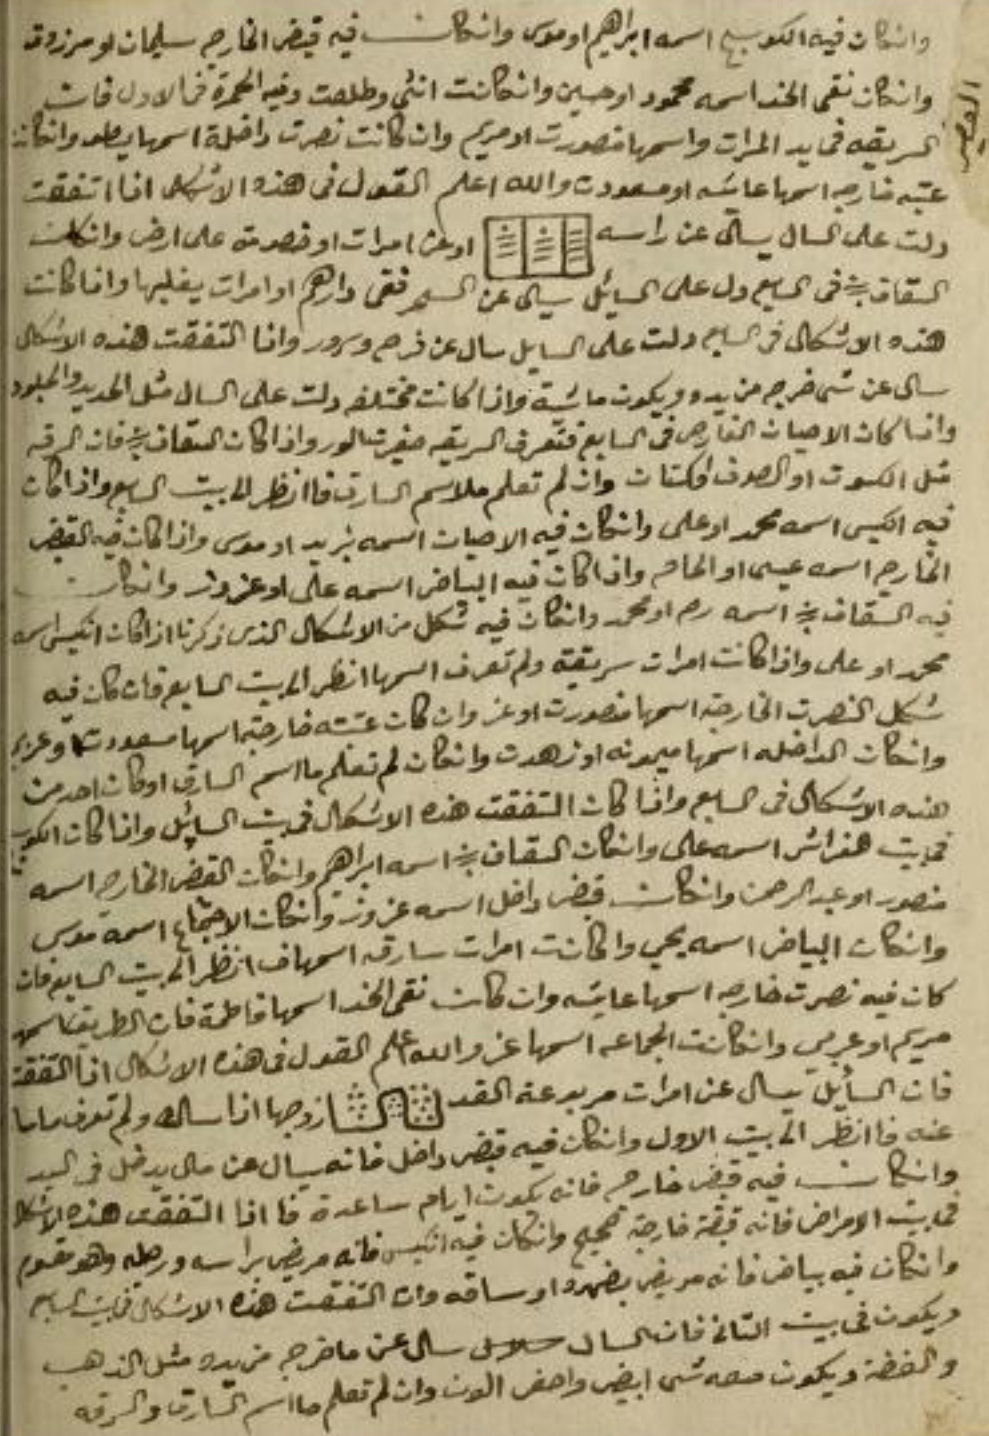 وانكان فيه الكوسج اسمه ابراهيم او موسى وانكانت فيه قبض الخارج سليمان او مرزوق
وانكان نقى الخد اسمه محمود او حسين وانكانت انثى وطلعت وفيه الحمرة فى الاول فان
السريقه فى يد المرات واسمها منصورت او مريم وان كانت نصرت داخلة اسمها وانكانت
عتبه خارجه اسمها عائشه او مسعودت والله اعلم القول فى هذه الاشكال اذا اتفقت
دلت على السال يسالى عن راسه او عن امرات او خصومه على ارض وانكانت
السقاف فى السابع دل على السائل سالى عن السحر ففى دارهم او امرات يغلبها واذا كانت
هذه الاشكال فى السابع دلت على السايل سال عن فرح وسرور واذا التفقت هذه الاشكال
سالى عن شى خرج من يده ويكون ماشية واذا كانت مختلفه دلت على السال مثل الحديد والجلود
واذا كان الاحيان الخارج فى السابع فتعرف السريقه صغيرت الور واذا كان السقاف فان السرقه
مثل الكسوت او الصوف اوكتان وان لم تعلم ملاسم السارق فا انظر الى بيت السابع واذا كان
فيه انكيس اسمه محمد او على وانكان فيه الاحيان اسمه يزيد او موسى واذا كان فيه القبض
الخارج اسمه عيسى او الحاج واذا كان فيه البياض اسمه على او عزوز وانكانت
فيه السقاف اسمه او محمد وانكان فيه شكل من الاشكال الذى ذكرنا اذا كان انكيس اسمه
محمد او على واذا كانت امرات سريقة ولم تعرف اسمها انظر الى بيت السابع فان كان فيه
شكل النصرت الخارجه اسمها منصورت او عز وان كان عتبه خارجه اسمها مسعودت او عربيه
وانكان الداخله اسمها ميمونه او زهدت وانكان لم تعلم ما اسم السارق اوكان احد من
هذه الاشكال فى السابع واذا كان التفقت هذه الاشكال فى بيت السائل واذا كان الكوسج
فى بيت اسمه على وانكان السقاف اسمه ابراهيم وانكان القبض الخارج اسمه
منصور او عبد الرحمن وانكانت قبض داخل اسمه عزوز وانكان الاجتماع اسمه موسى
وانكان البياض اسمه يحي وا كانت امرات سارقه اسمها انظر الى بيت السابع فان
كان فيه نصرت خارجه اسمها عائشه وان كانت نقى الخد اسمها فاطمة فان الطريق اسمها
مريم او عربى وانكانت الجماعه اسمها عز والله اعلم القول فى هذه الاشكال اذا التفقة
فان السائل يسال عن امرات مربوعة القد زوجها اذا سالك ولم تعرف ما
عنه فا انظر الى بيت الاول وانكان فيه قبض داخل فانه يسال عن مالى يدخل فى اليد
وانكانت فيه قبض خارج فانه يكون ايام ساعدة فا اذا التفقت هذه الاشكال
فى بيت الامراض فانه قبضة خارجة صحيح وانكان فيه انكيس فانه مريض براسه ورجله وهو مغموم
وانكان فيه بياض فانه مريض بضهره او ساقه وان التفقت هذه الاشكال فى بيت السابع
ويكون فى بيت الثانى فان السال سالى عن ما خرج من يده مثل الذهب
والفضة ويكون معه شى ابيض واصفر الون وان لم تعلم ما اسم السارق والسرقه